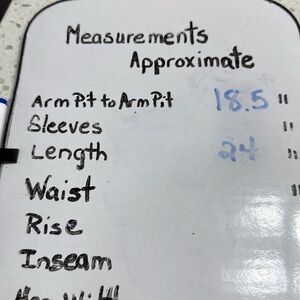 Measurements
Approximate
Arm Pit to Arm Pit 18.5 "
Sleeves "
Length 24 "
Waist "
Rise
Inseam